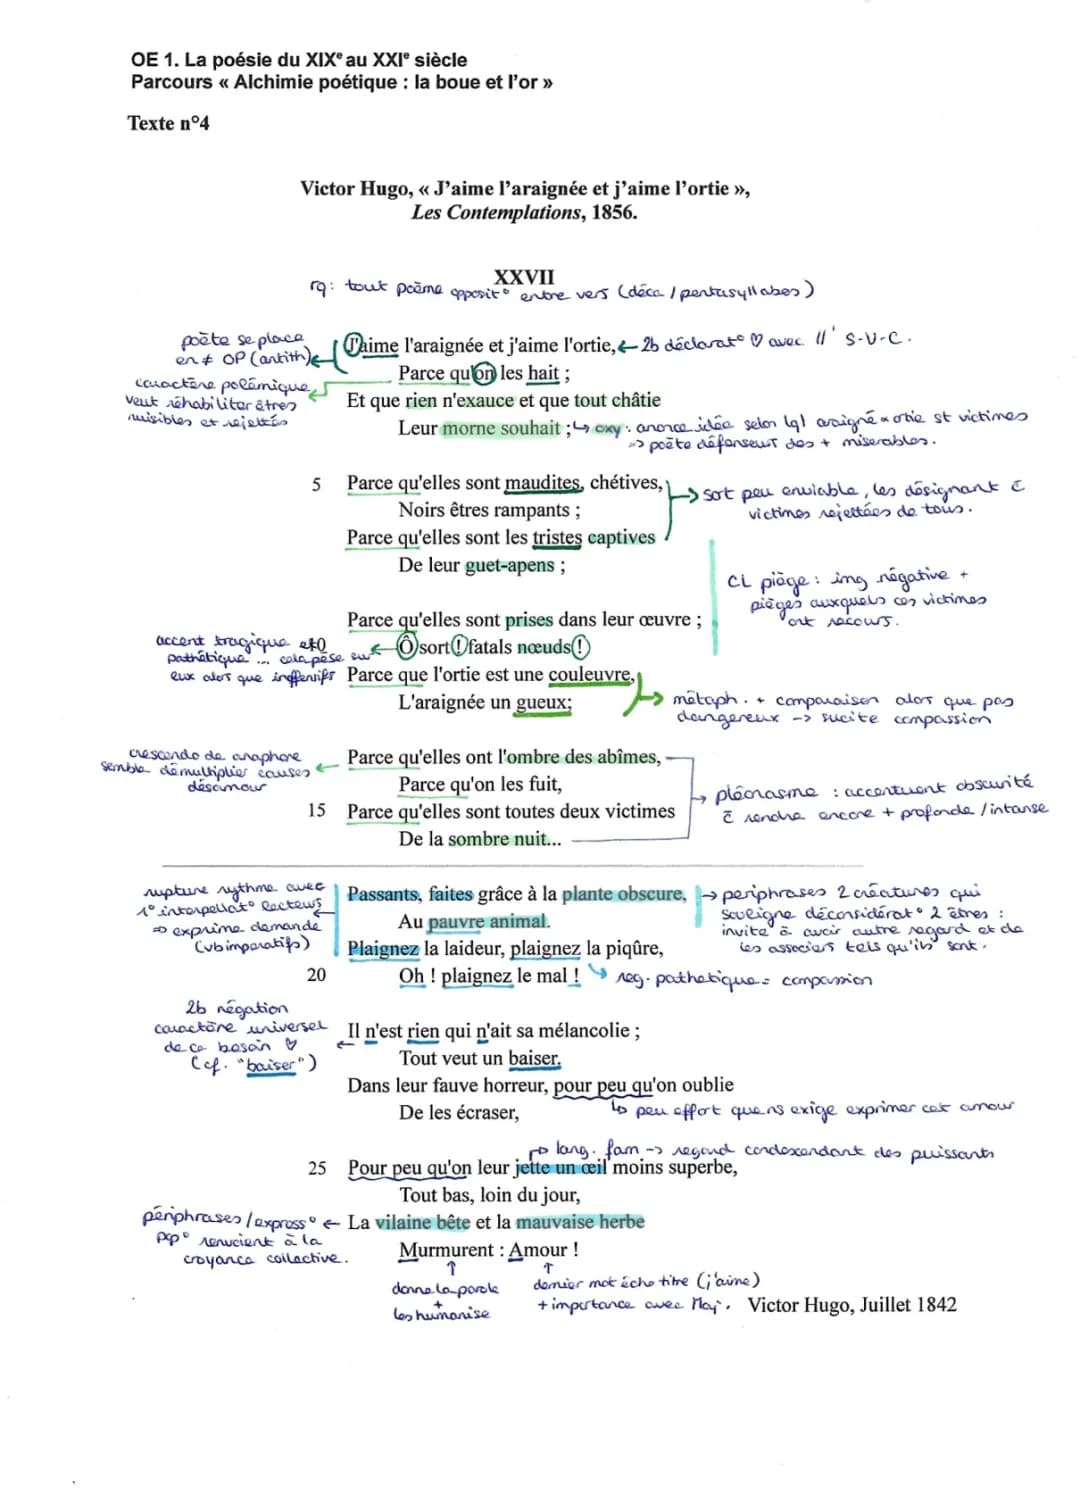 OE 1. La poésie du XIXe au XXIe siècle
Parcours « Alchimie poétique : la boue et l'or »
Texte n°4
Victor Hugo, « J'aime l'araignée et j'aime l'ortie »,
Les Contemplations, 1856.
XXVII
rq: tout poème opposit° entre vers (déca / pentasyllabes)
poète se place
en ≠ OP (antith)
J'aime l'araignée et j'aime l'ortie, ← 2b déclarat° ♡ avec //' S-V-C.
Parce qu'on les hait ;
caractère polémique
veut réhabiliter êtres
nuisibles et rejetés
Et que rien n'exauce et que tout châtie
Leur morne souhait ; ↳ oxy : anonce idée selon lql araigné × ortie st victimes
=> poète défenseur des + miserables.
5 Parce qu'elles sont maudites, chétives,
Noirs êtres rampants ;
→ sort peu enviable, les désignant c̄
victimes rejettées de tous.
Parce qu'elles sont les tristes captives
De leur guet-apens ;
CL piège : img négative +
pièges auxquels ces victimes
ont recours.
Parce qu'elles sont prises dans leur œuvre ;
Ô sort ! fatals nœuds !
accent tragique et
pathétique ... cela pèse sur
eux alors que inoffensifs
Parce que l'ortie est une couleuvre,
L'araignée un gueux;
métaph. + comparaison alors que pas
dangereux -> sucite compassion
crescendo de anaphore
semble démultiplier causes
désamour
Parce qu'elles ont l'ombre des abîmes,
Parce qu'on les fuit,
15 Parce qu'elles sont toutes deux victimes
De la sombre nuit...
→ pléonasme : accentuent obscurité
c̄ rendre encore + profonde / intense
rupture rythme avec
1° interpellat° lecteurs
=> exprime demande
(vb imperatifs)
Passants, faites grâce à la plante obscure,
Au pauvre animal.
→ periphrases 2 créatures qui
souligne déconsidérat° 2 êtres :
invite à avoir autre regard et de
les associers tels qu'ils sont.
Plaignez la laideur, plaignez la piqûre,
20 Oh ! plaignez le mal ! ↳ reg. pathetique = compassion
2b négation
caractère universel
de ce besoin ♡
(cf. "baiser")
Il n'est rien qui n'ait sa mélancolie ;
Tout veut un baiser.
Dans leur fauve horreur, pour peu qu'on oublie
De les écraser,
↳ peu effort que ns exige exprimer cet amour
lang. fam -> regard condexendant des puissants
25 Pour peu qu'on leur jette un œil moins superbe,
Tout bas, loin du jour,
périphrases / express°
pop° renvoient à la
croyance collective.
← La vilaine bête et la mauvaise herbe
Murmurent : Amour !
donne la parole
+
les humanise
dernier mot écho titre (j'aime)
+ importance avec Maj.
Victor Hugo, Juillet 1842